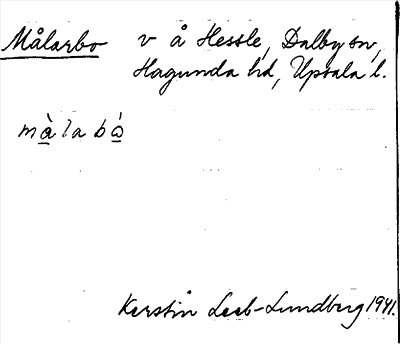 Målarbo v å Hessle, Dalby sn,
Hagunda hd, Upsala l.
màlabá
Kerstin Leeb-Lundberg 1941.